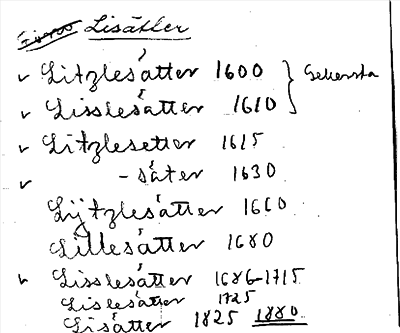 Lisätter
✓ Litzlesätter 1600
✓ Lisslesätter 1610
✓ Litzlesetter 1615
✓ - säter 1630
Lijtzlesätter 1660
Lillesätter 1680
✓ Lisslesätter 1686-1715
Lislesätter 1725
Lisätter 1825 1880